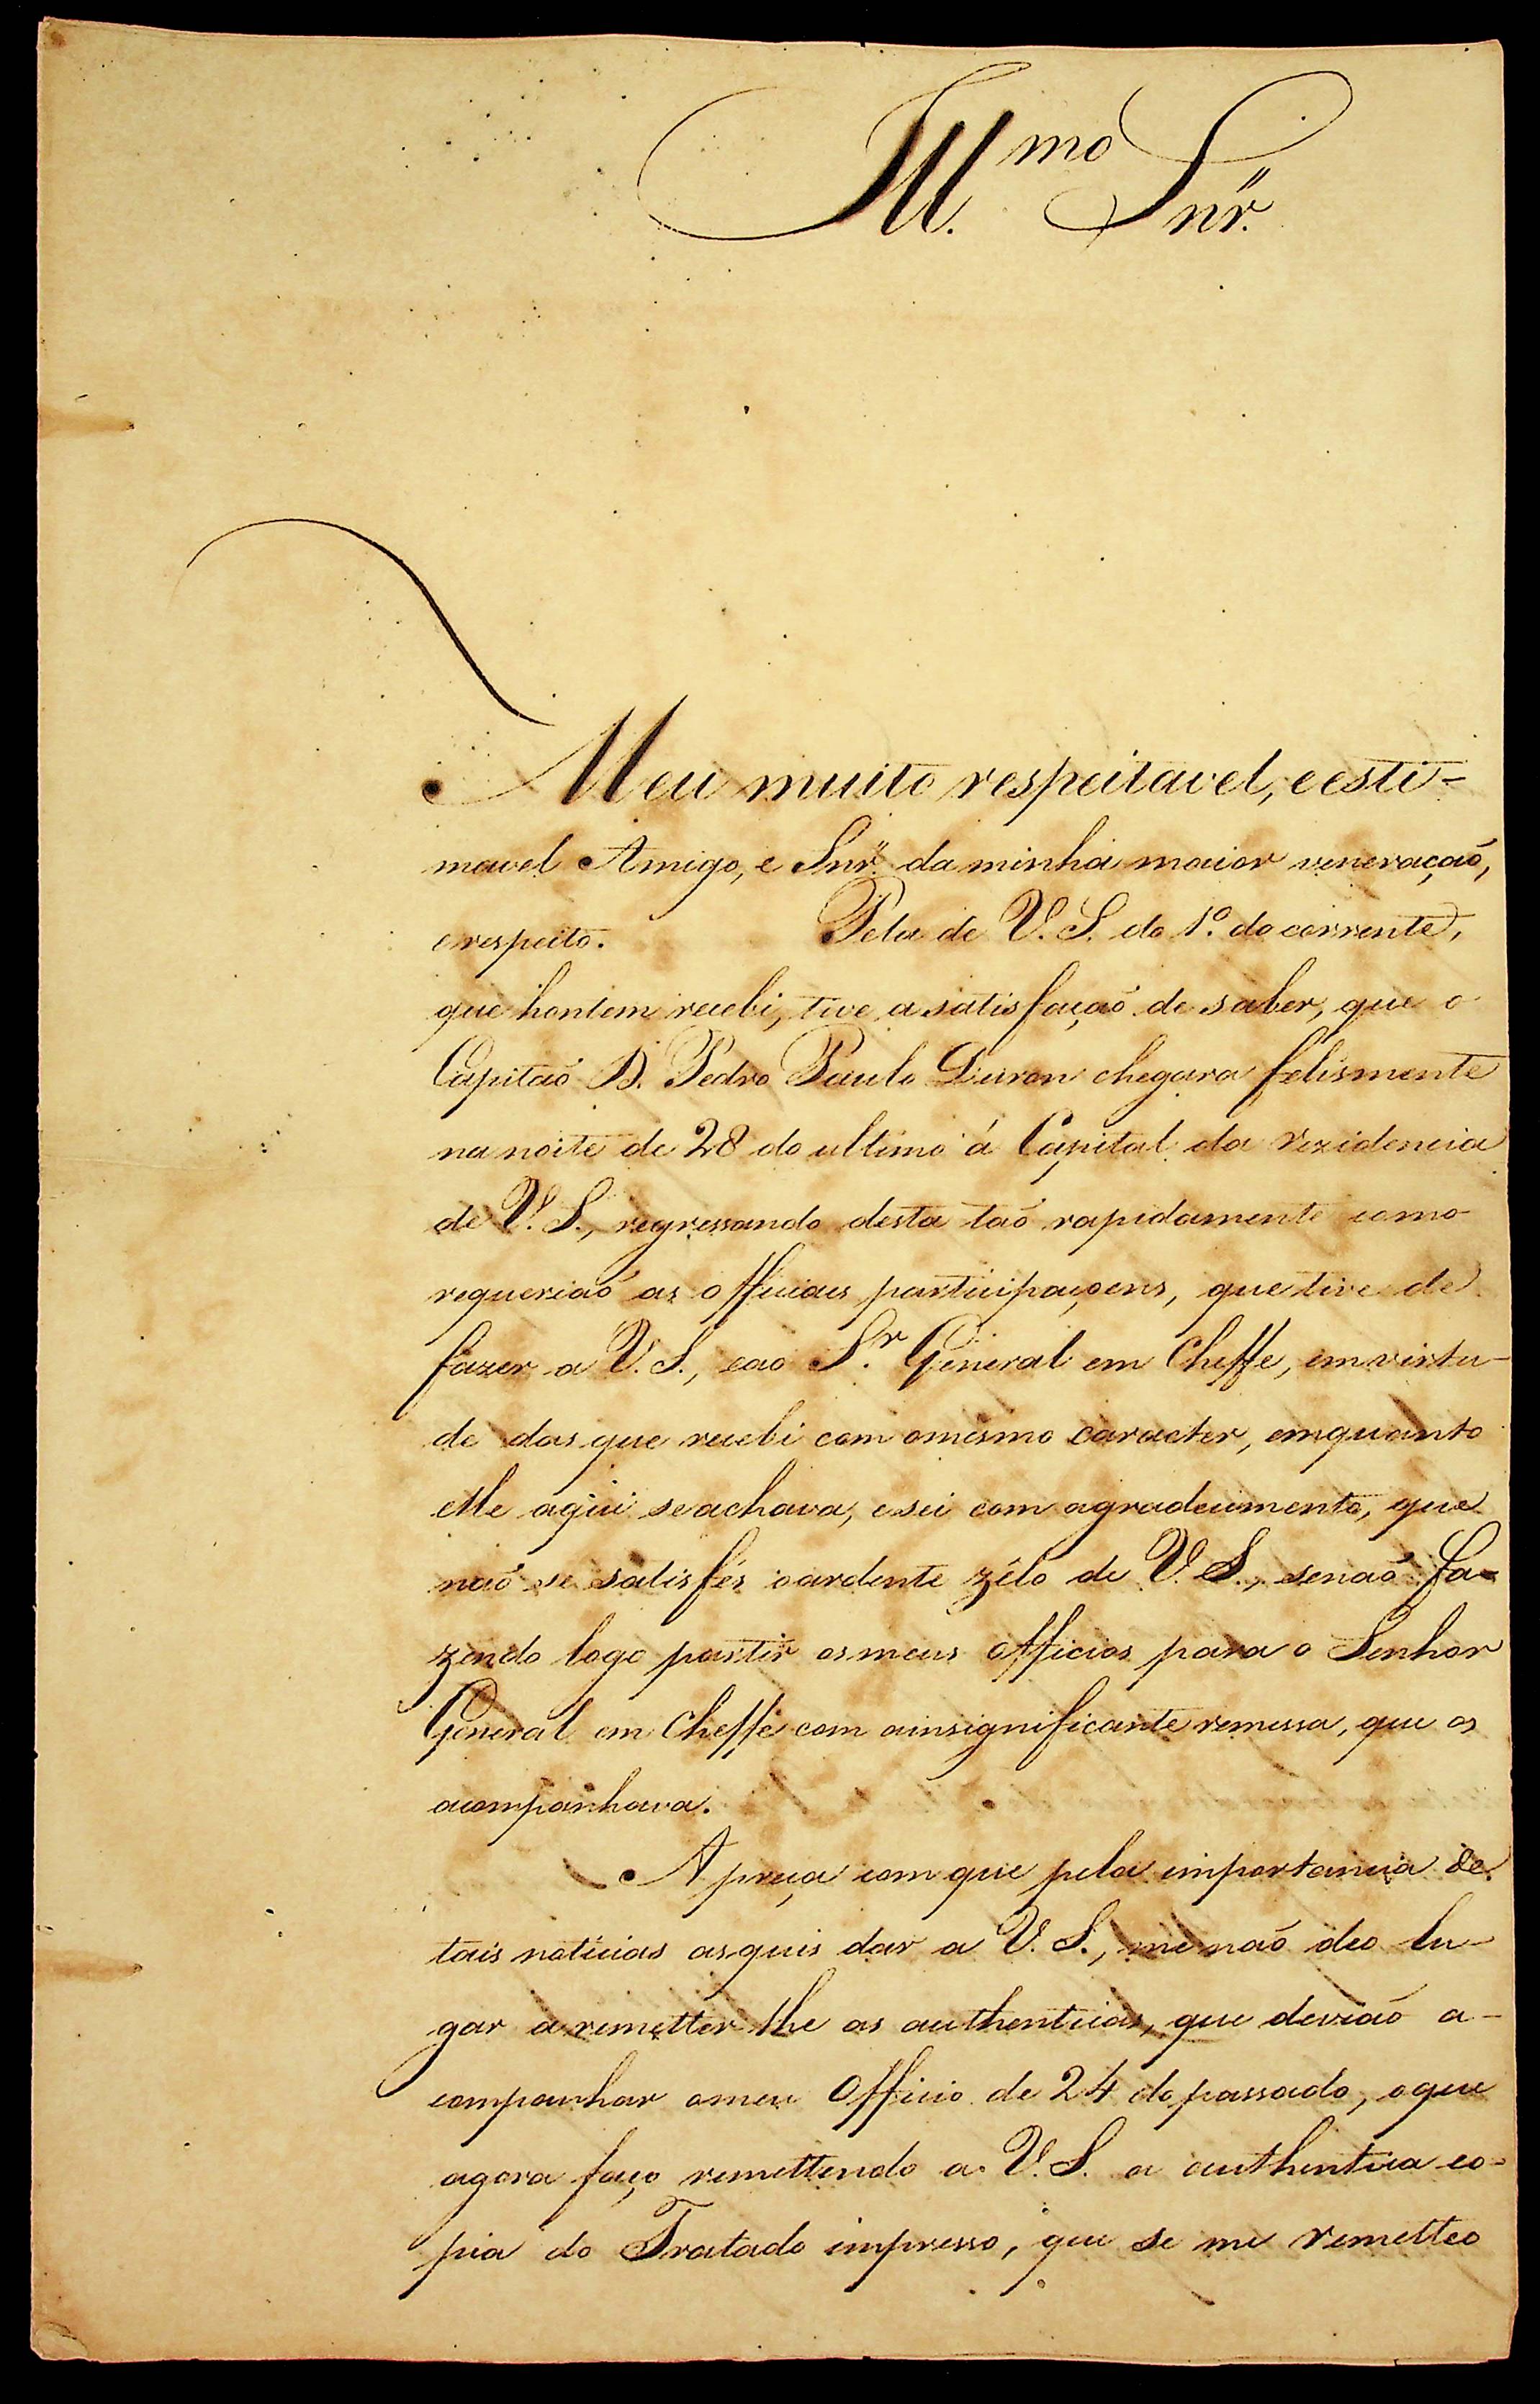 Ill.mo Snr.
Meu muito respeitavel, e esti-
mavel Amigo, e Snr. da minha maior veneraçaõ,
e respeito. Pela de V. S. do 1º do corrente,
que hontem recebi, tive a satisfaçaõ de saber, que o
Capitaõ D. Pedro Paulo Duron chegara felismente
na noite de 28 do ultimo á Capital da rezidencia
de V. S., regressando desta taõ rapidamente como
requeriaõ as officiaes participaçoens, que tive de
fazer a V. S., e ao S.r General em Cheffe, em virtu-
de das que recebi com o mesmo caracter, emquanto
elle aqui se achava, e sei com agradecimento, que
naõ se satisfés o ardente zêlo de V. S., senaõ fa-
zendo logo partir os meus officios para o Senhor
General em Cheffe com a insignificante remessa, que os
acompanhava.
A preça com que pela importancia de
tais noticias as quis dar a V. S., me naõ deo lu-
gar a remetter lhe as authenticas, que deviaõ a-
companhar o meu Officio de 24 do passado, o que
agora faço remettendo a V. S. a authentica co-
pia do Tratado impresso, que se me remetteo